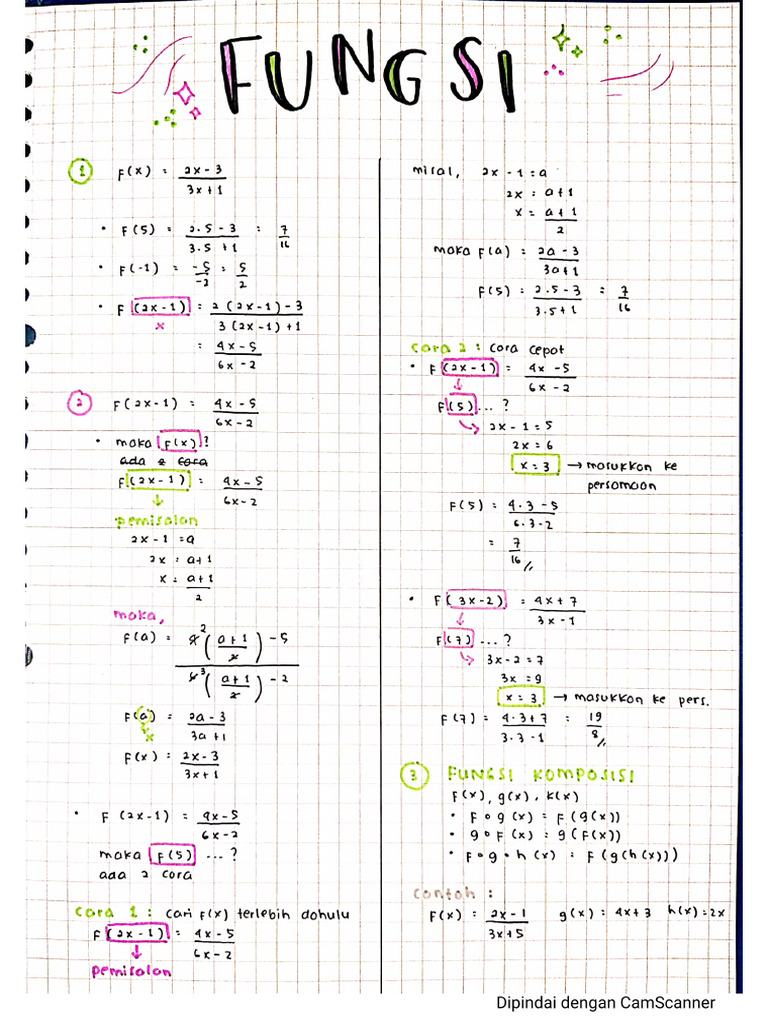 FUNGSI
1 F(x) = 2x-3 / 3x+1
• F(5) = 2.5-3 / 3.5+1 = 7/16
• F(-1) = -5/-2 = 5/2
• F(2x-1) = 2(2x-1)-3 / 3(2x-1)+1
x
= 4x-5 / 6x-2
2 F(2x-1) = 4x-5 / 6x-2
• maka F(x)?
ada 2 cara
F(2x-1) = 4x-5 / 6x-2
↓
pemisalan
2x-1 = a
2x = a+1
x = a+1 / 2
maka,
F(a) = 4² (a+1 / 2) -5 / 6³ (a+1 / 2) -2
F(a) = 2a-3 / 3a+1
x
F(x) = 2x-3 / 3x+1
• F(2x-1) = 4x-5 / 6x-2
maka F(5) ...?
ada 2 cara
cara 1 : cari F(x) terlebih dahulu
F(2x-1) = 4x-5 / 6x-2
↓
pemisalan
misal, 2x-1 = a
2x = a+1
x = a+1 / 2
maka F(a) = 2a-3 / 3a+1
F(5) = 2.5-3 / 3.5+1 = 7/16
cara 2 : cara cepat
• F(2x-1) = 4x-5 / 6x-2
↓
F(5) ...?
↳ 2x-1 = 5
2x = 6
x = 3 → masukkan ke
persamaan
F(5) = 4.3-5 / 6.3-2
= 7/16 //
• F(3x-2) = 4x+7 / 3x-1
↓
F(7) ...?
↳ 3x-2 = 7
3x = 9
x = 3 → masukkan ke pers.
F(7) = 4.3+7 / 3.3-1 = 19/8 //
3 FUNGSI KOMPOSISI
F(x), g(x), k(x)
• F∘g(x) = F(g(x))
• g∘F(x) = g(F(x))
• F∘g∘h(x) = F(g(h(x)))
contoh :
F(x) = 2x-1 / 3x+5 g(x) = 4x+3 h(x)=2x
Dipindai dengan CamScanner